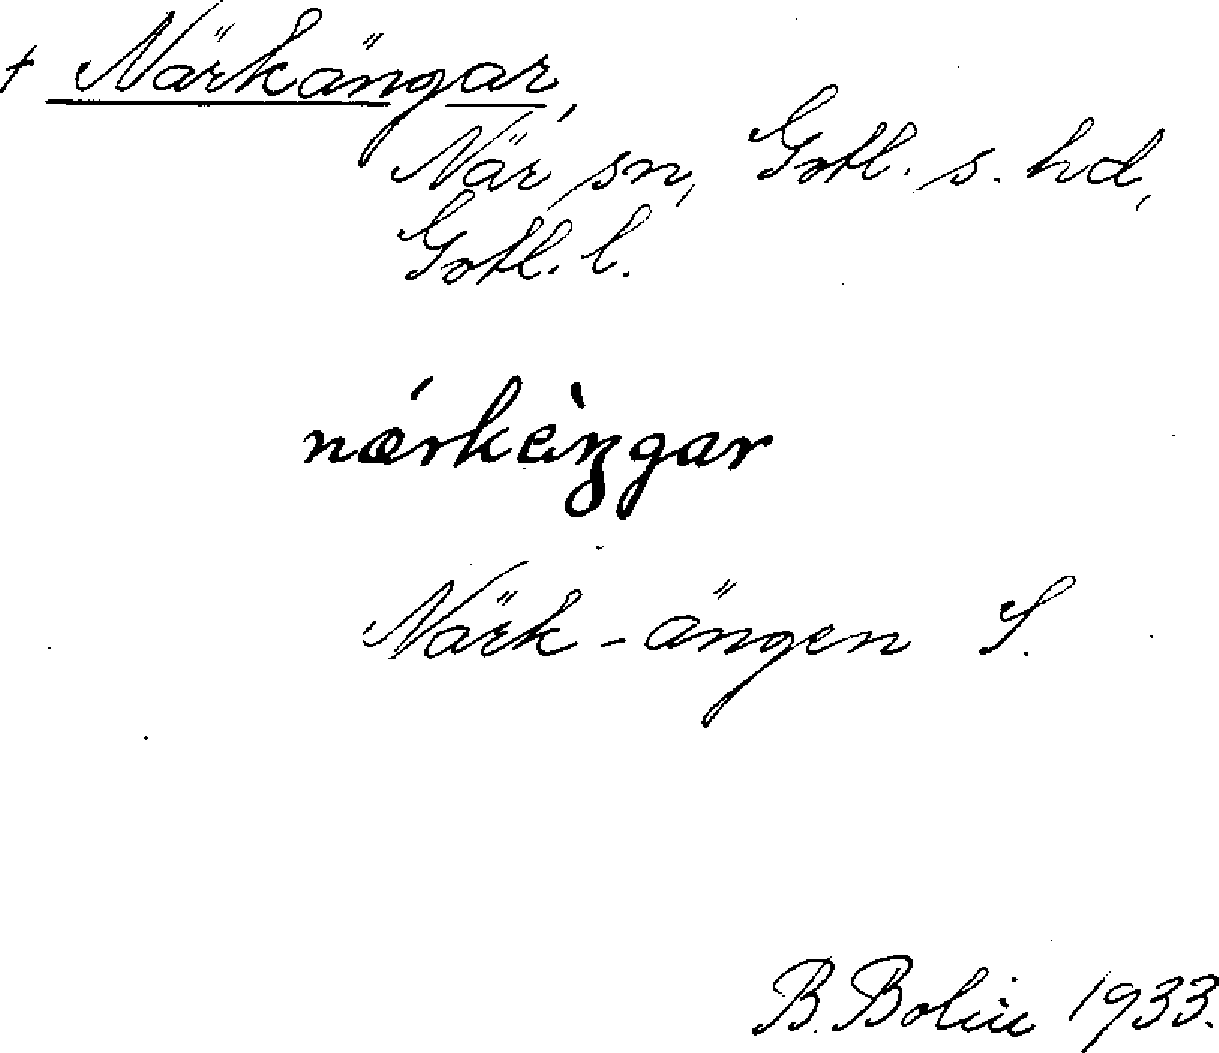 + Närkängar,
När sn, Gotl. s. hd,
Gotl. l.
nǽrkèŋgar
Närk-ängen S.
B. Bolin 1933.